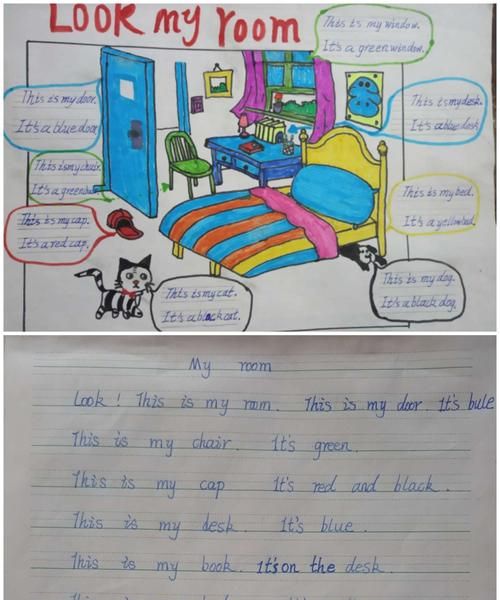 LOOK my room
This is my window.
It's a green window.
This is my door.
It's a blue door
This is my desk.
It's a blue desk
This is my chair.
It's a green
This is my bed.
It's a yellow bed.
This is my cap.
It's a red cap.
This is my cat.
It's a black cat.
This is my dog.
It's a black dog.
My room
Look! This is my room. This is my door. It's bule
This is my chair. It's green.
This is my cap It's red and black.
This is my desk. It's blue.
This is my book. It's on the desk.
This is my